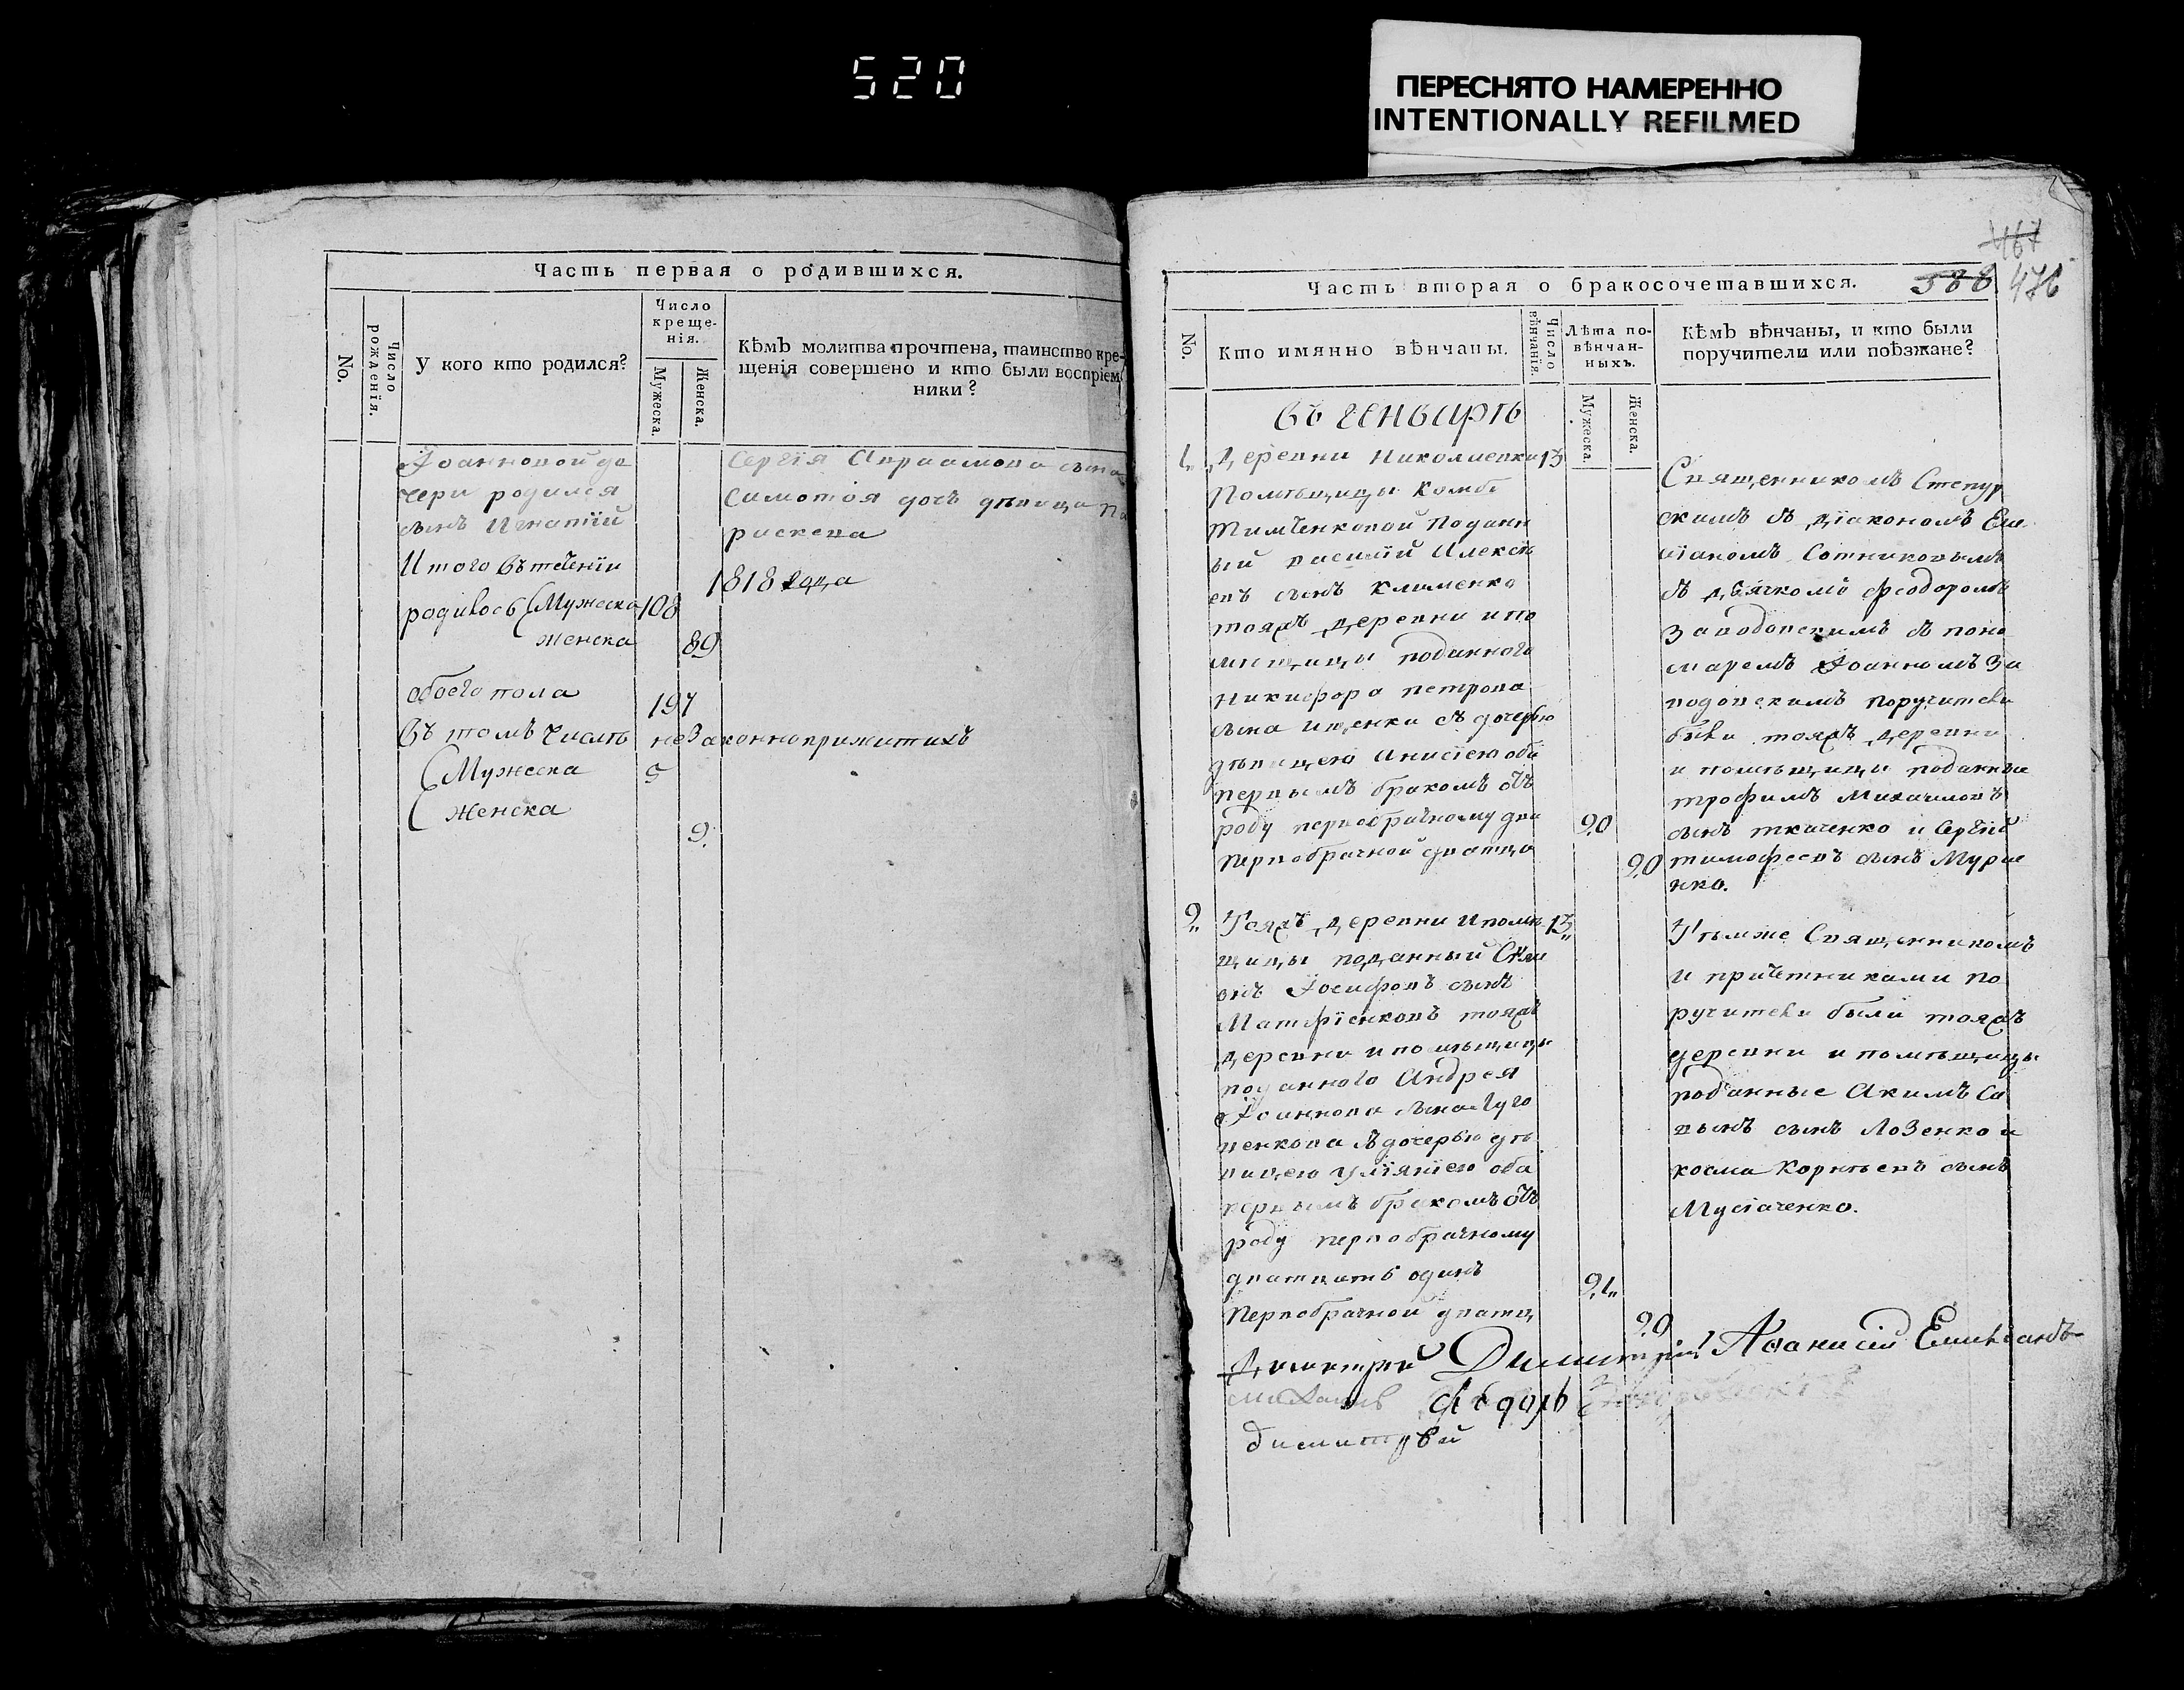 520
ПЕРЕСНЯТО НАМЕРЕННО
INTENTIONALLY REFILMED
Часть первая о родившихся.
No.
Число рожденія.
У кого кто родился?
Число
креще-
нія.
Мужеска.
Женска.
Кѣмъ молитва прочтена, таинство кре-
щенія совершено и кто были воспріем
ники?
Іоанновой до
чери родился
сынъ Игнатій
Итого въ теченіи
родилось Мужеска 108
женска 89
обоего пола 197
въ томъ числѣ незаконноприжитихъ
Мужеска 5
Женска
9.
Сергія Авраамова сына
дочь дѣвица Па
раскева
1818 года
467
476
Часть вторая о бракосочетавшихся.
No.
Кто имянно вѣнчаны.
Число вѣнчанія.
Лѣта по-
вѣнчан-
ныхъ.
Мужеска.
Женска.
Кѣмъ вѣнчаны, и кто были
поручители или поѣзжане?
въ генварѣ
1 Деревни Николаевки 13
Помѣщицы
Тимченковой подани
ый василій Алексѣ
евъ сынъ Клименко
тояжъ деревни и по
мѣщицы поданного
Никифора петрова
сына съ дочерью
дѣвицею Анисіею оба
первымъ бракомъ отъ
роду первобрачному два 20
первобрачной дватца 20
Священникомъ Степур
скимъ съ діакономъ Еми
ліаномъ Сотниковымъ
съ дьячкомъ феодоромъ
Заводовскимъ съ поно
маремъ Іоанномъ За
водовскимъ поручители
были тояжъ деревни
и помѣщицы поданные
трофимъ Михаиловъ
сынъ ткаченко и Сергій
тимофеевъ сынъ Мурие
нко.
2 Тояжъ деревни и помѣ 13
щицы поданный Сим
онъ Іосифовъ сынъ
Матфіенковъ тояжъ
деревни и помѣщицы
поданного Андрея
Іоаннова сына Луго
венкова съ дочерью дѣ
вицею Уліяніею оба
первымъ бракомъ отъ
роду первобрачному
дватцать одинъ 21
Первобрачной дватц 20
Тѣмже Священникомъ
и причетниками по
ручители были тояжъ
деревни и помѣщицы
поданные Акимъ Са
вынъ сынъ Лозенко и
косма Корнѣевъ сынъ
Мусіаченко.
Димитрій Аѳанасій
Фѣдоръ
димитрѣй